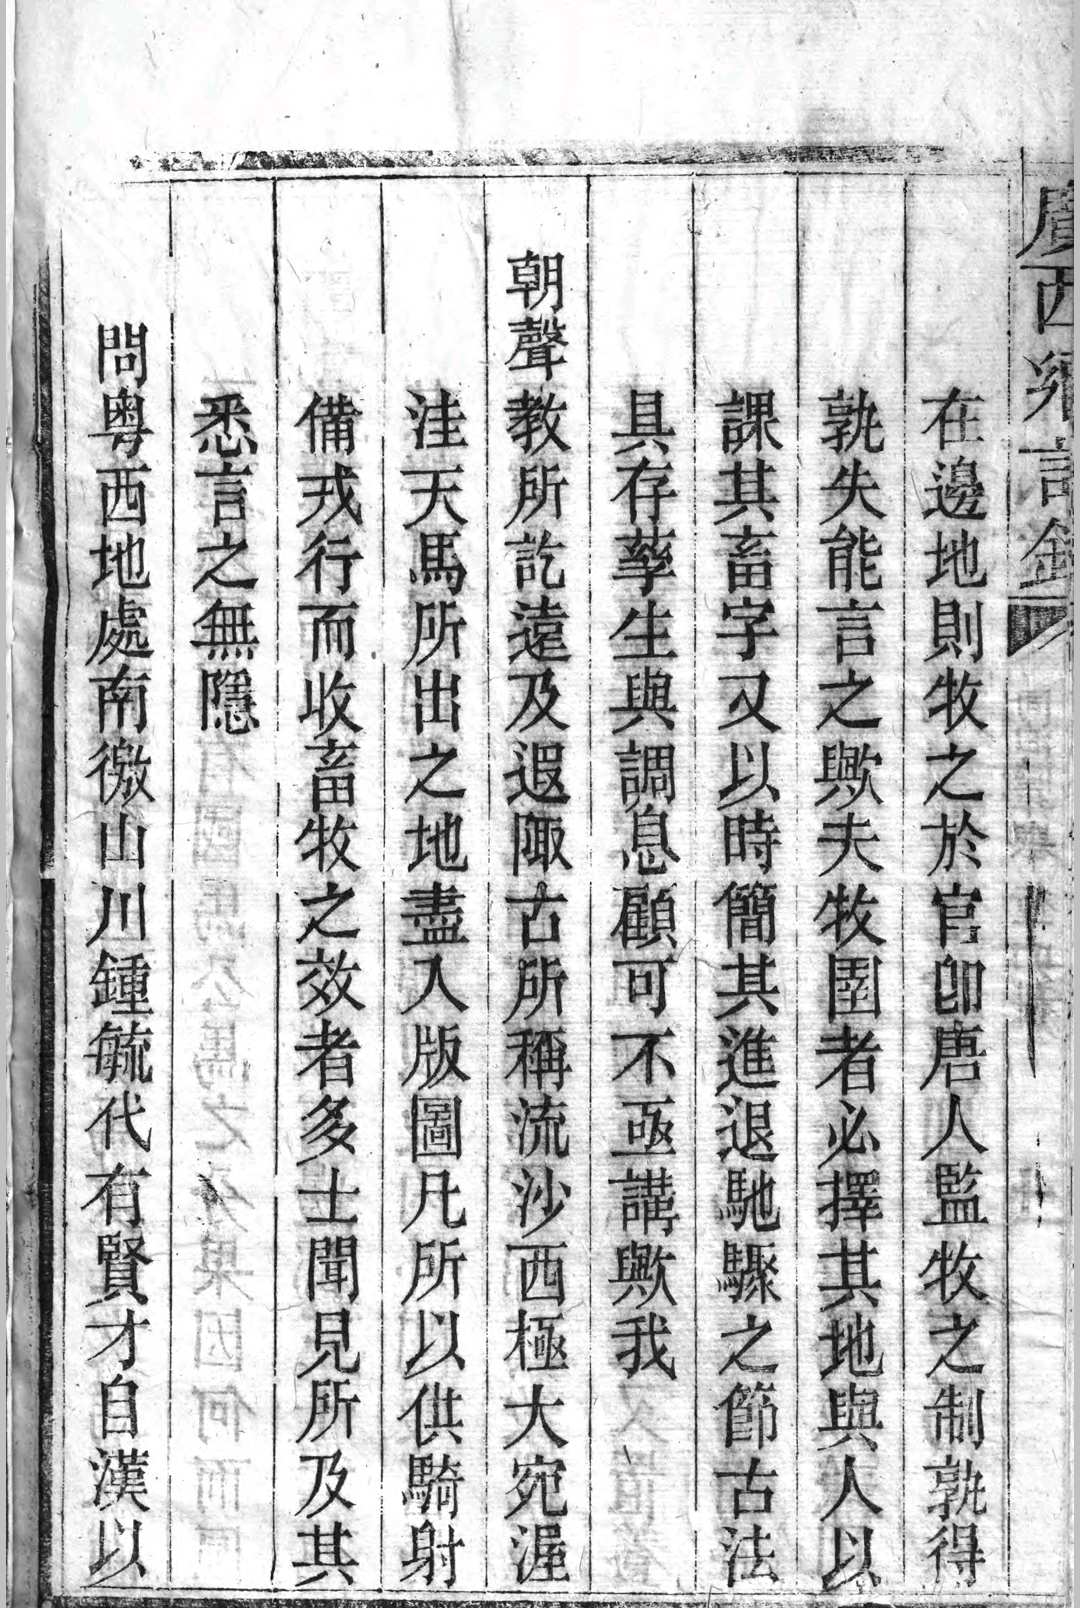 廣西鄉試錄
在邊地則牧之於官卽唐人監牧之制孰得
孰失能言之歟夫牧圉者必擇其地與人以
課其畜字又以時簡其進退馳驟之節古法
具存孳生與調息顧可不亟講歟我
朝聲教所訖遠及遐陬古所稱流沙西極大宛渥
洼天馬所出之地盡入版圖凡所以供騎射
備戎行而收畜牧之效者多士聞見所及其
悉言之無隱
問粵西地處南徼山川鍾毓代有賢才自漢以